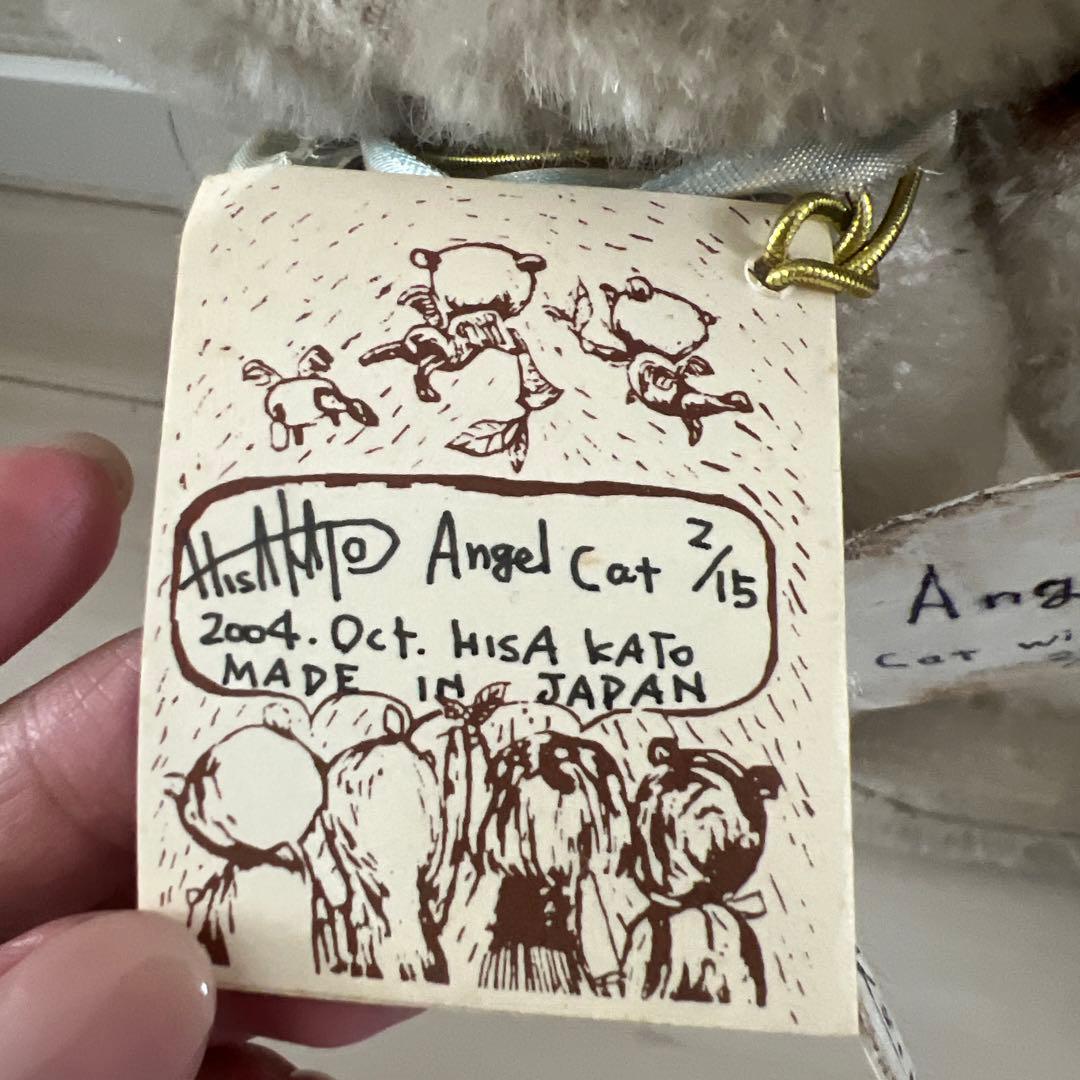 HISAKATO Angel Cat 2/15
2004. Oct. HISA KATO
MADE IN JAPAN
Ang
Cat wi